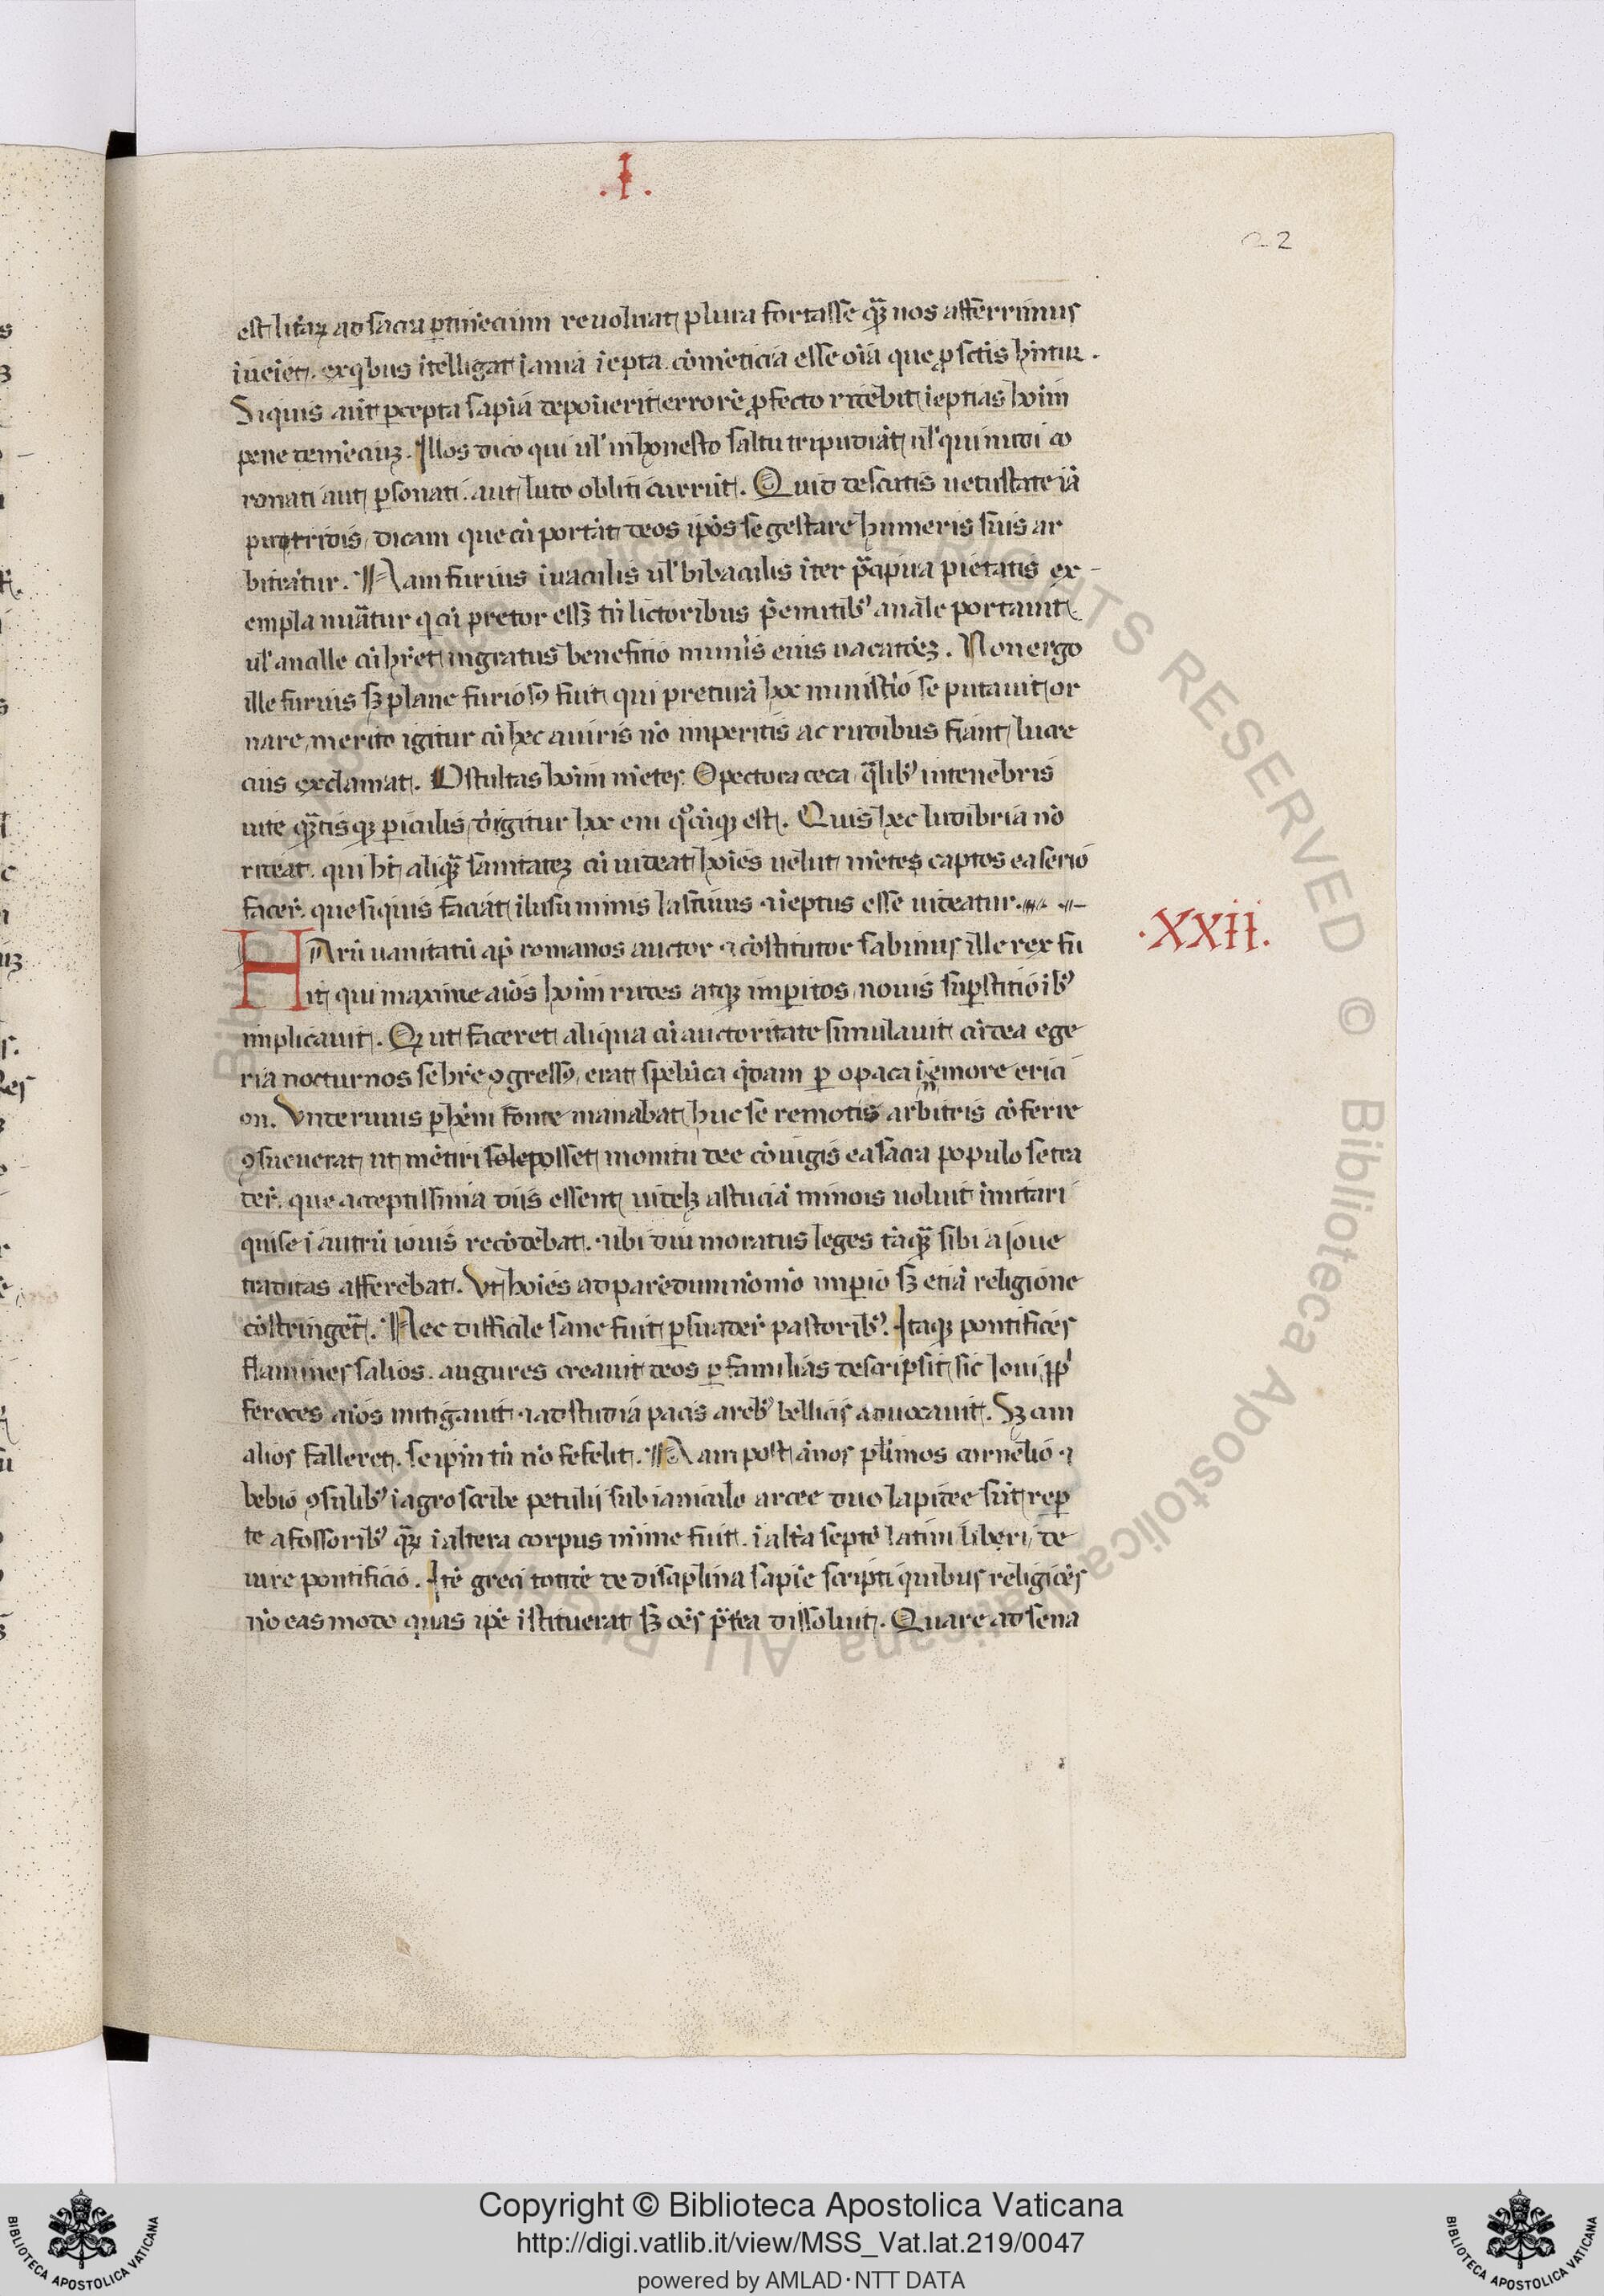 .I.
22
est litaꝝ ad sacra ꝑtinẽcium reuoluat plura fortasse qᷓꝫ nos afferrimus
iueiet. exqͥbus ĩtelligat ĩania ĩepta. cõmẽticia esse oĩa que ꝓ sctis hñtur.
Siquis aũt ꝑcepta sapĩa deposuerit errorẽ ꝓfecto ridebit ĩeptias hoĩm
pene demẽciuꝫ. Illos dico qui ul' inhonesto saltu tripudiãt ul' qui nudi co
ronati aut ꝑsonati. aut luto obliti currũt. Quid de scutis uetustate iã
putridis dicam que cũ portãt deos ip̃os se gestare humeris suis ar
bitrãtur. Nam furius ĩuaculis ul' bibaculis ĩter p̃cipua pietatis ex
empla nuãtur q cũ pretor essꝫ tñ lictoribus p̃eũtibꝰ ancile portauit
ul' ancille cũ hr̃et ingratus benefitio mun̾is eius uacatõeꝫ. Non ergo
ille furius sꝫ plane furiosꝰ fuit qui preturã hoc minist̾io se putauit or
nare, merito igitur cũ hec auiris nõ imperitis ac rudibus fiant lucre
cius exclamat. O stultas hoĩm mẽtes. O pectora ceca, qᷓlibꝰ intenebris
uite qᷓꝫtisqꝫ ꝑiculis, d̾igitur hoc eui qͦcũqꝫ est. Quis hec ludibria nõ
rideat. qui ht̃ aliqᷓꝫ sanitateꝫ cũ uideat hoĩes uelut mẽtes captos ea serio
facer̾. que siquis faciat ĩlusu nimis lasciuus ⁊ ĩeptus esse uideatur.
.XXII.
HArũ uanitatũ ap̃ romanos auctor ⁊ cõstitutor sabinus ille rex fu
it qui maxime aĩos hoĩm rudes atqꝫ imꝑitos, nouis suꝑstitiõibꝰ
implicauit. Q ut faceret aliqua cũ auctoritate simulauit cũ dea ege
ria nocturnos se hr̃e ꝯgressꝰ, erat spelũca qͥdam ꝑ opaca ĩnemore erici
on. Vnde riuus ꝑhẽni fonte manabat huc se remotis arbitris cõferre
ꝯsueuerat ut mẽtiri sole posset monitu dee cõiugis ea sacra populo se tra
der̾. que acceptissima diis essent uidelꝫ astuciã minois uoluit ĩmitari
qui se ĩ antrũ iouis recõdebat. ubi diu moratus leges tãqᷓꝫ sibi a Joue
traditas afferebat. Vt hoĩes ad parẽdum nõ mõ imꝑio sꝫ etiã religione
cõstringẽt. Nec difficile sane fuit ꝑsuader̾ pastoribꝰ. Itaqꝫ pontifices
flamines salios. augures creauit deos ꝑ familias descripsit, sic Joui pp'
feroces aĩos mitigauit ⁊ ad studia pacis a rebꝰ bellicis aduocauit. Sꝫ cum
alios falleret. se ip̃m tñ nõ fefelit. Nam post ãnos pl̾imos cornelio ⁊
bebio ꝯsulibꝰ ĩ agro scribe petulii sub ianiculo arcee duo lapidee sũt reꝑ
te a fossoribꝰ qᷓꝝ ĩ altera corpus nũme fuit. ĩ alt̾a septẽ latini liberi, de
iure pontificio. Itẽ greci totidẽ de disciplina sapĩe scripti quibus religiões
nõ eas modo quas ip̃e ĩstituerat sꝫ oẽs p̃t̾ea dissoluit. Quare ad sena
Copyright © Biblioteca Apostolica Vaticana
http://digi.vatlib.it/view/MSS_Vat.lat.219/0047
powered by AMLAD·NTT DATA